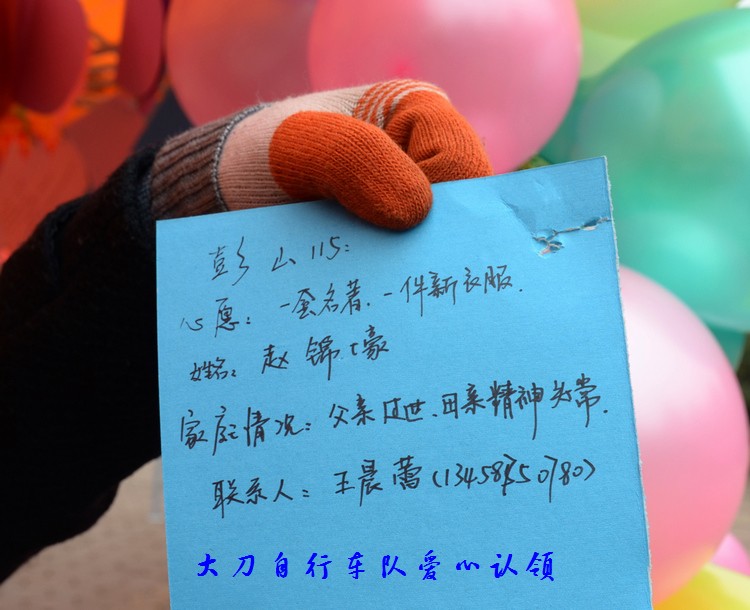 彭山115:
心愿:一套名著、一件新衣服.
姓名:赵锦豪
家庭情况:父亲过世、母亲精神失常.
联系人:王晨蕾(13458550780)
大刀自行车队爱心认领